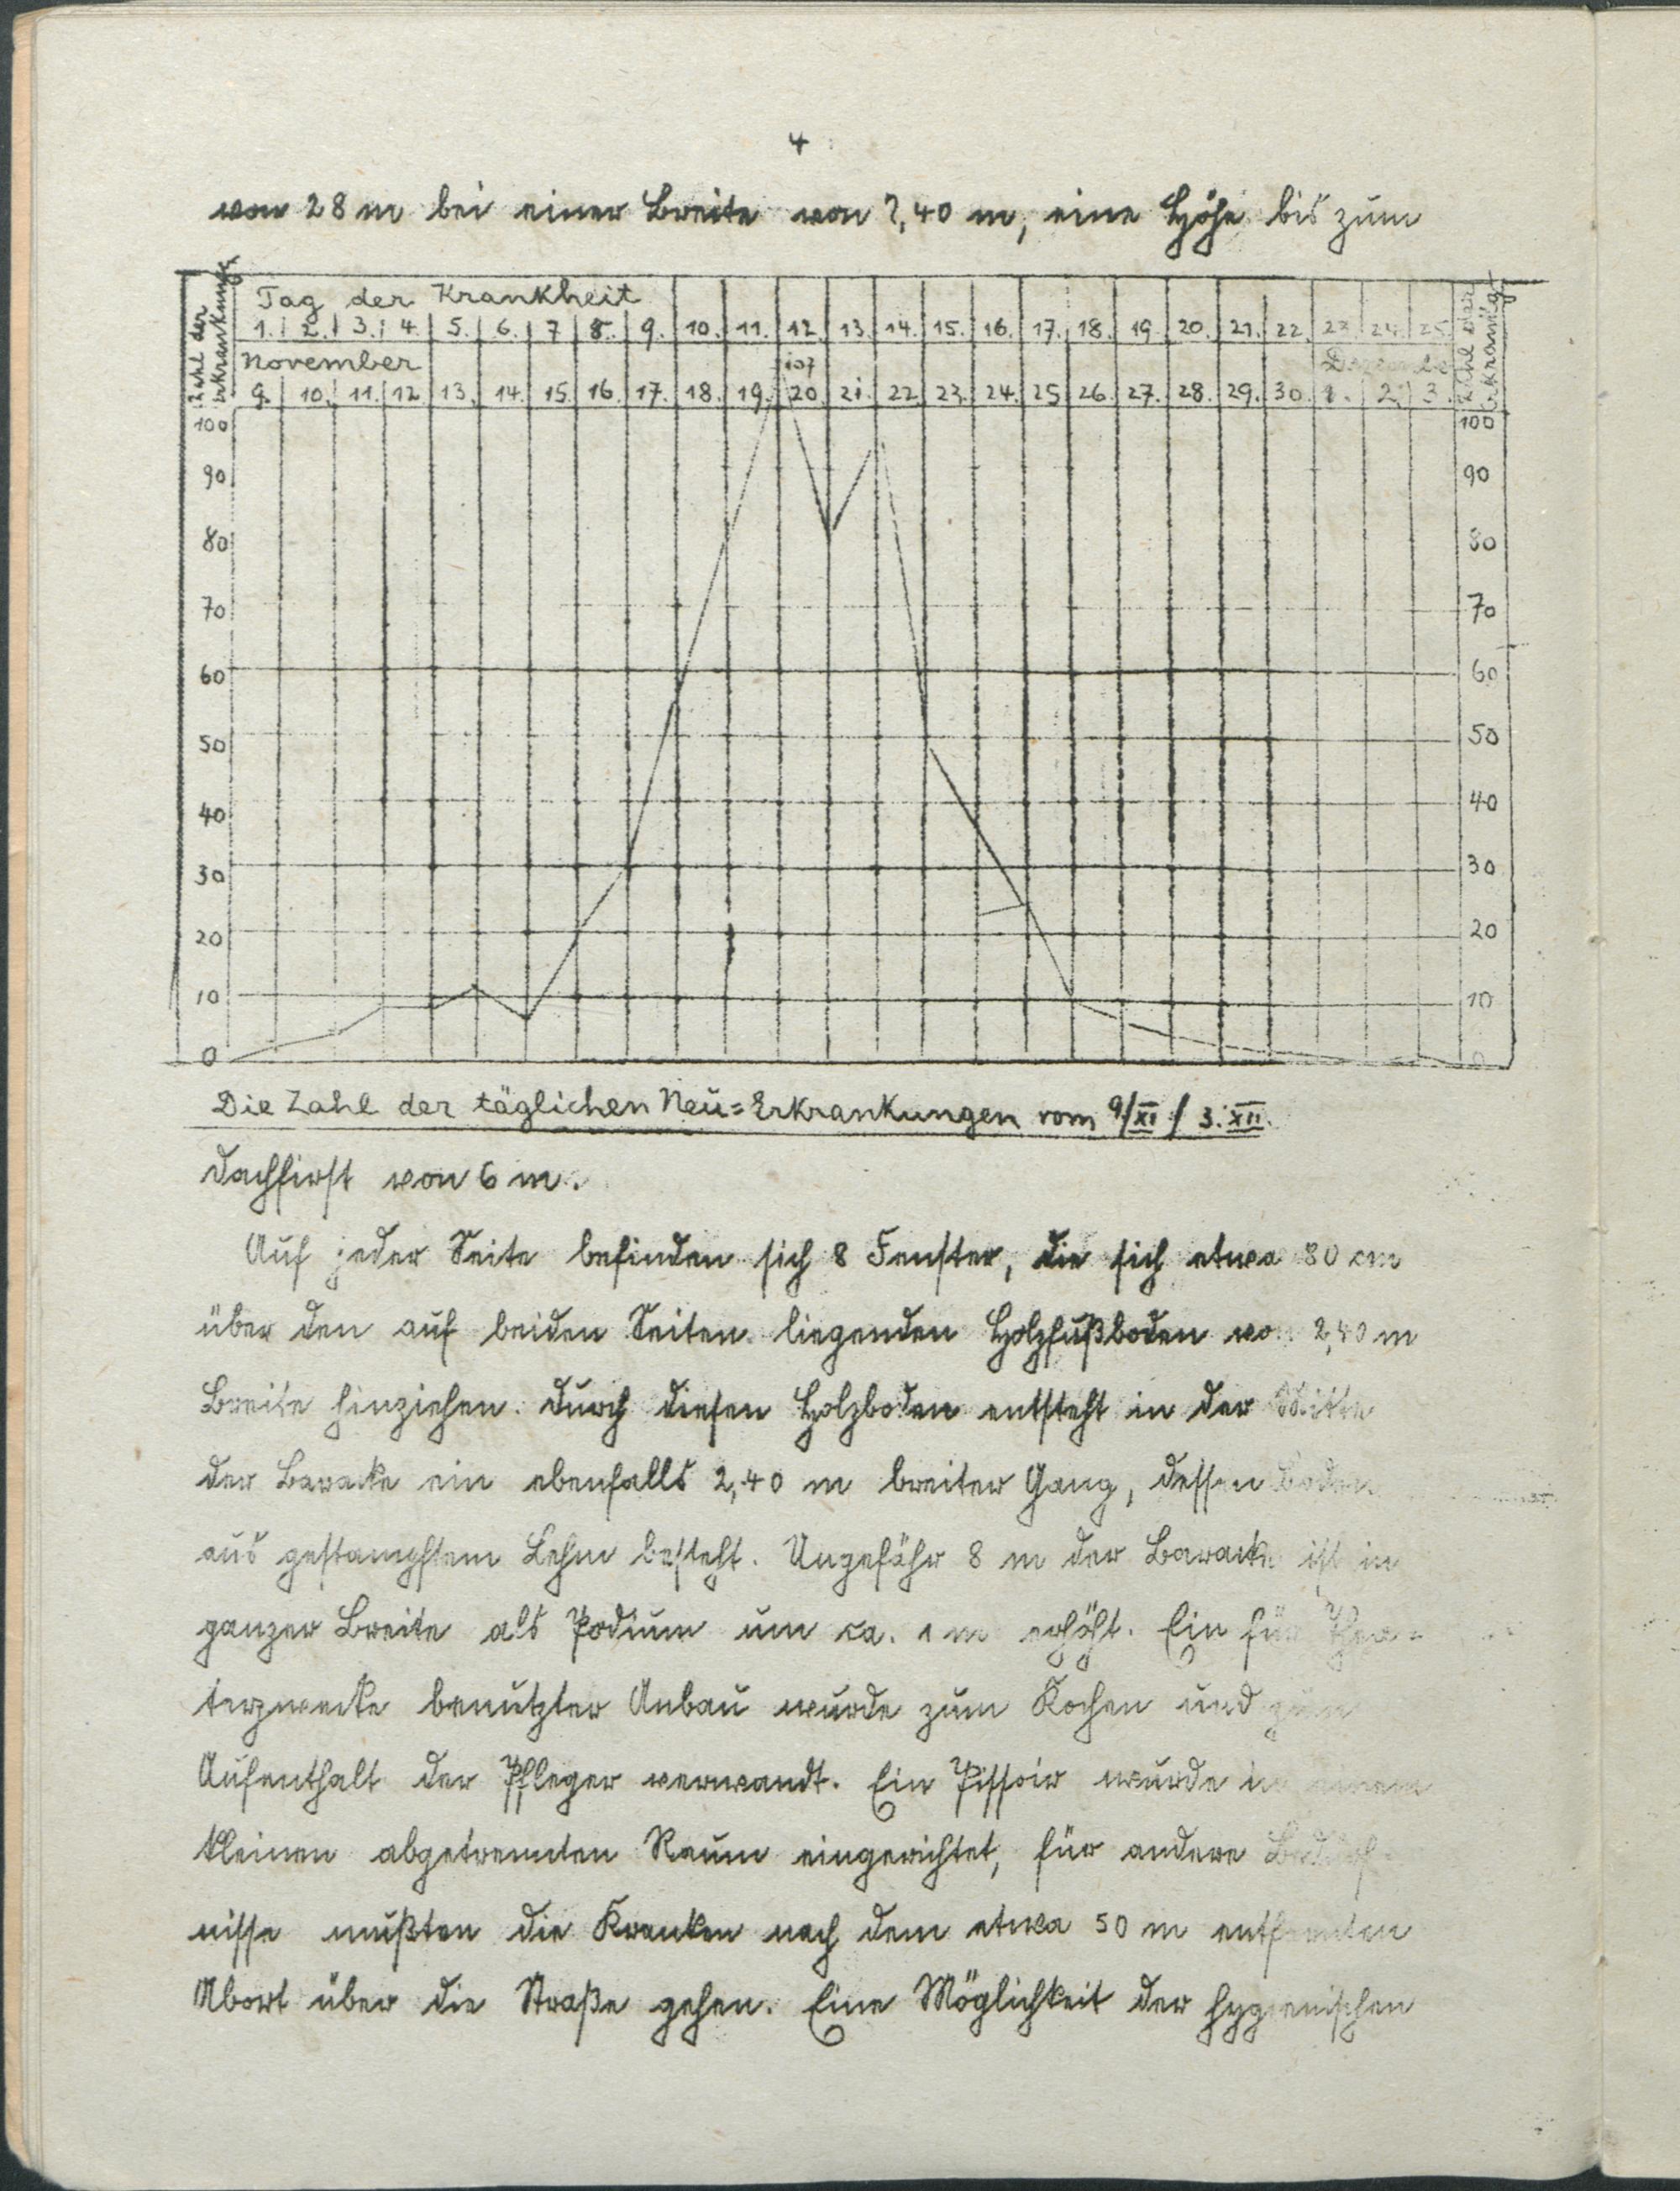 4
von 28 m bei einer Breite von 7,40 m, eine Höhe bis zum
Zahl der Erkrankung
Tag der Krankheit
1. 2. 3. 4. 5. 6. 7 8. 9. 10. 11. 12. 13. 14. 15. 16. 17. 18. 19. 20. 21. 22. 23. 24. 25.
November 107 Dezember
9. 10. 11. 12. 13. 14. 15. 16. 17. 18. 19. 20. 21. 22. 23. 24. 25. 26. 27. 28. 29. 30. 1. 2. 3.
Zahl der
100 100
90 90
80 80
70 70
60 60
50 50
40 40
30 30
20 20
10 10
0 0
Die Zahl der täglichen Neu=Erkrankungen vom 9/XI / 3. XII.
Dachfirst von 6 m.
Auf jeder Seite befinden sich 8 Fenster, die sich etwa 80 cm
über den auf beiden Seiten liegenden Holzfußboden von 2,40 m
Breite hinziehen. Durch diesen Holzboden entsteht in der Mitte
der Baracke ein ebenfalls 2,40 m breiter Gang, dessen Boden
aus gestampftem Lehm besteht. Ungefähr 8 m der Baracke ist in
ganzer Breite als Podium um ca. 1 m erhöht. Ein für Thea=
terzwecke benutzter Anbau wurde zum Kochen und zum
Aufenthalt der Pfleger verwandt. Ein Pissoir wurde in einem
kleinen abgetrennten Raum eingerichtet, für andere Bedürf-
nisse mußten die Kranken nach dem etwa 50 m entfernten
Abort über die Straße gehen. Eine Möglichkeit der hygienischen